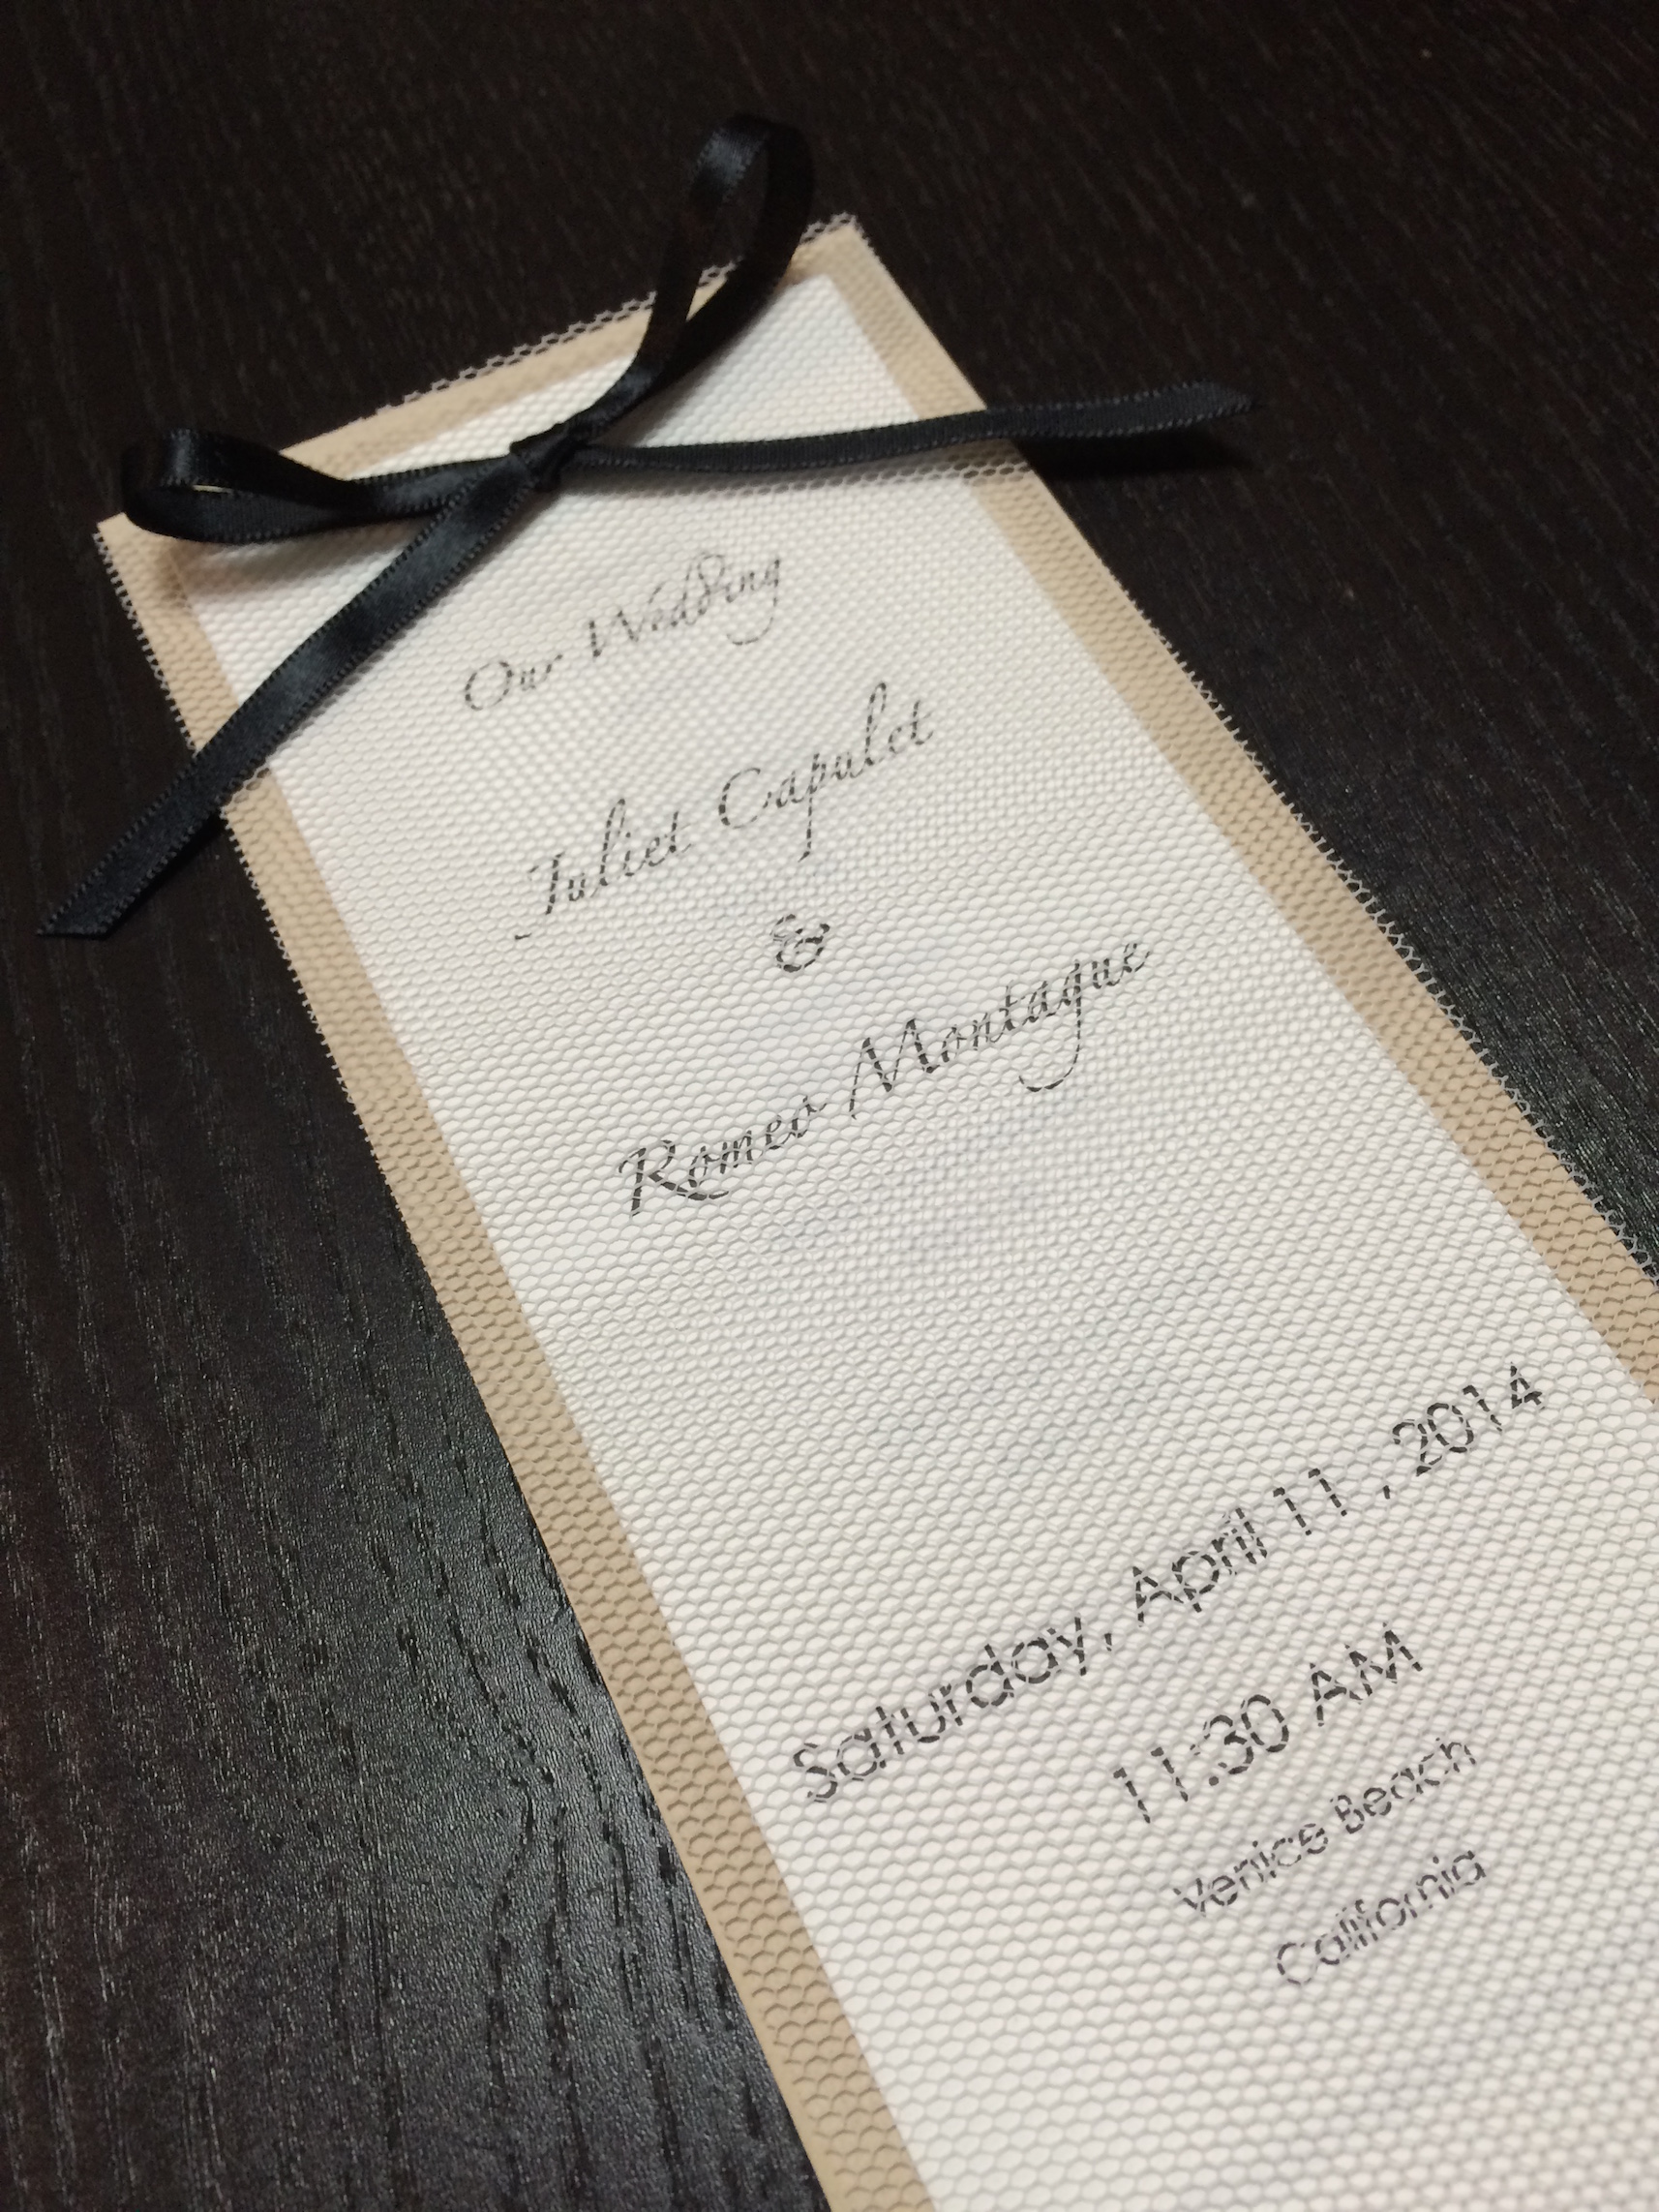 Our Wedding
Juliet Capulet
&
Romeo Montague
Saturday, April 11 , 2014
11:30 AM
Venice Beach
California